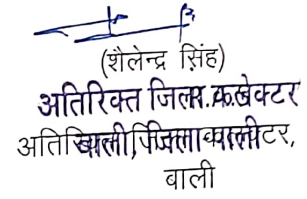 (शैलेन्द्र सिंह)
अतिरिक्त जिला कलेक्टर
अतिरिक्त जिला कलेक्टर,
बाली